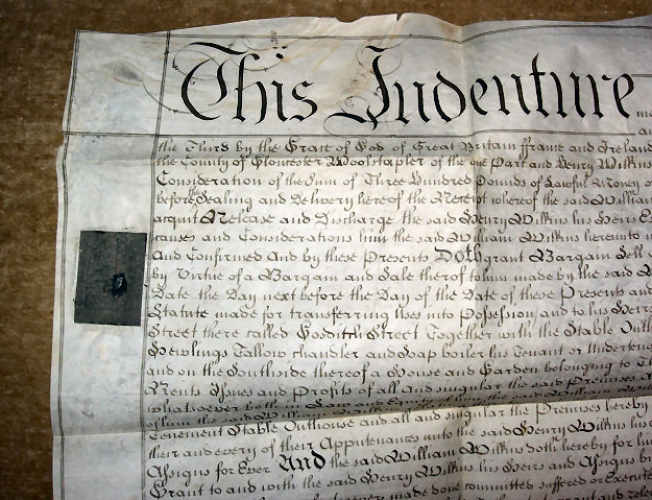 This Indenture
the Third by the Grace of God of Great Britain ffrance and Ireland
the County of Gloucester Woolstapler of the one Part and Henry Wilkins
Consideration of the Sum of Three Hundred Pounds of Lawful Money o
before the Sealing and Delivery hereof the Receipt whereof the said William
acquit Release and Discharge the said Henry Wilkins his Heirs E
causes and Considerations him the said William Wilkins hereunto
And Confirmed And by these Presents Doth grant Bargain Sell
by Virtue of a Bargain and Sale thereof to him made by the said
Date the Day next before the Day of the Date of these Presents and
Statute made for transferring Uses into Possession and to his Heirs
Street there called Street Together with the Stable Outh
Hewlings Tallow Chandler and Soap boiler his Tenant or Underten
and on the Southside thereof a House and Garden belonging to
Rents Issues and Profits of all and singular the said Premises
whatsoever both in Law and Equity of him the said William
Tenement Stable Outhouse and all and singular the Premises hereby
their and every of their Appurtenances unto the said Henry Wilkins his
Assigns for Ever And the said William Wilkins doth hereby for
Grant to and with the said Henry Wilkins his Heirs and Assigns
made done committed suffered or Execute